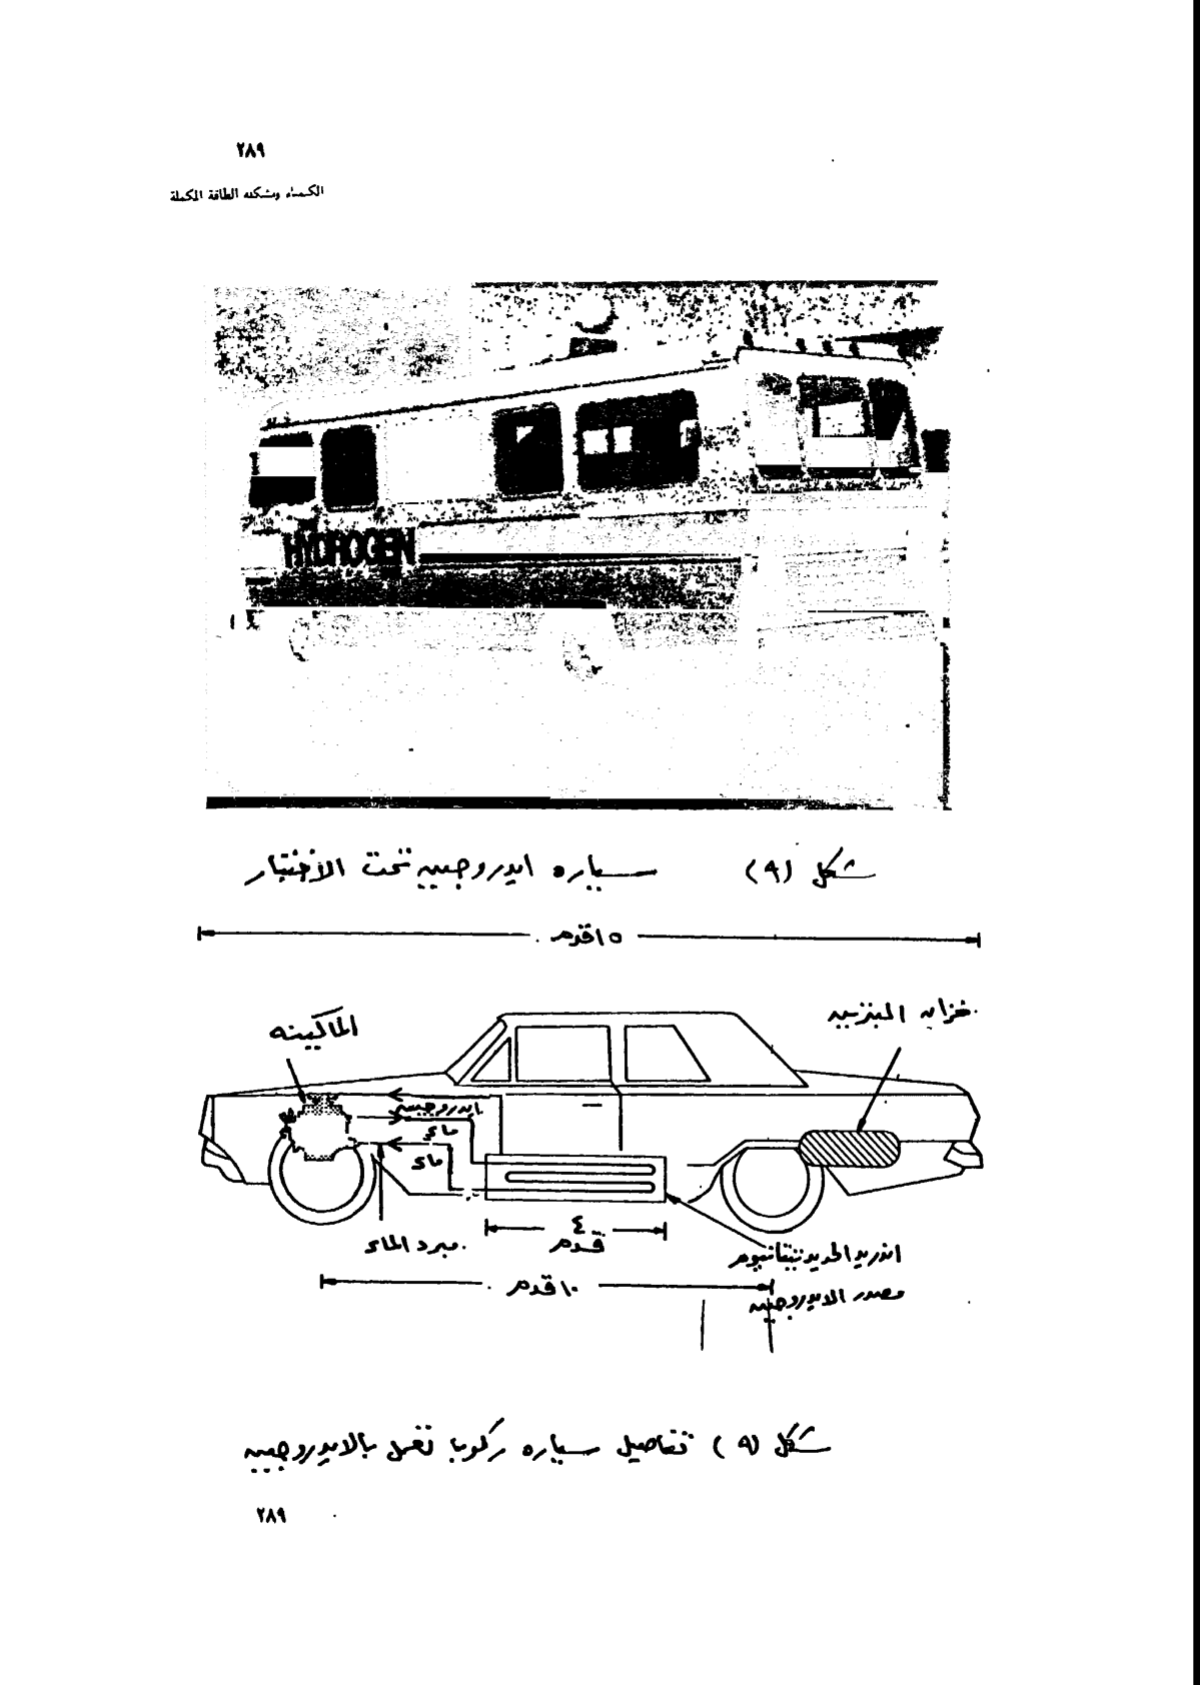 ٢٨٩
الكيمياء ومشكلة الطاقة المكملة
HYDROGEN
شكل (٩) سياره ايدروجينيه تحت الأختبار
١٥ قدم
خزان البنزين
الماكينه
ايدروجين
ماء
ماء
٤
قدم
مبرد الماء
ادريد الحديد تيتانيوم
مصدر الايدروجين
١٠ قدم
شكل (٩) تفاصيل سياره ركوب تعمل بالايدروجين
٢٨٩